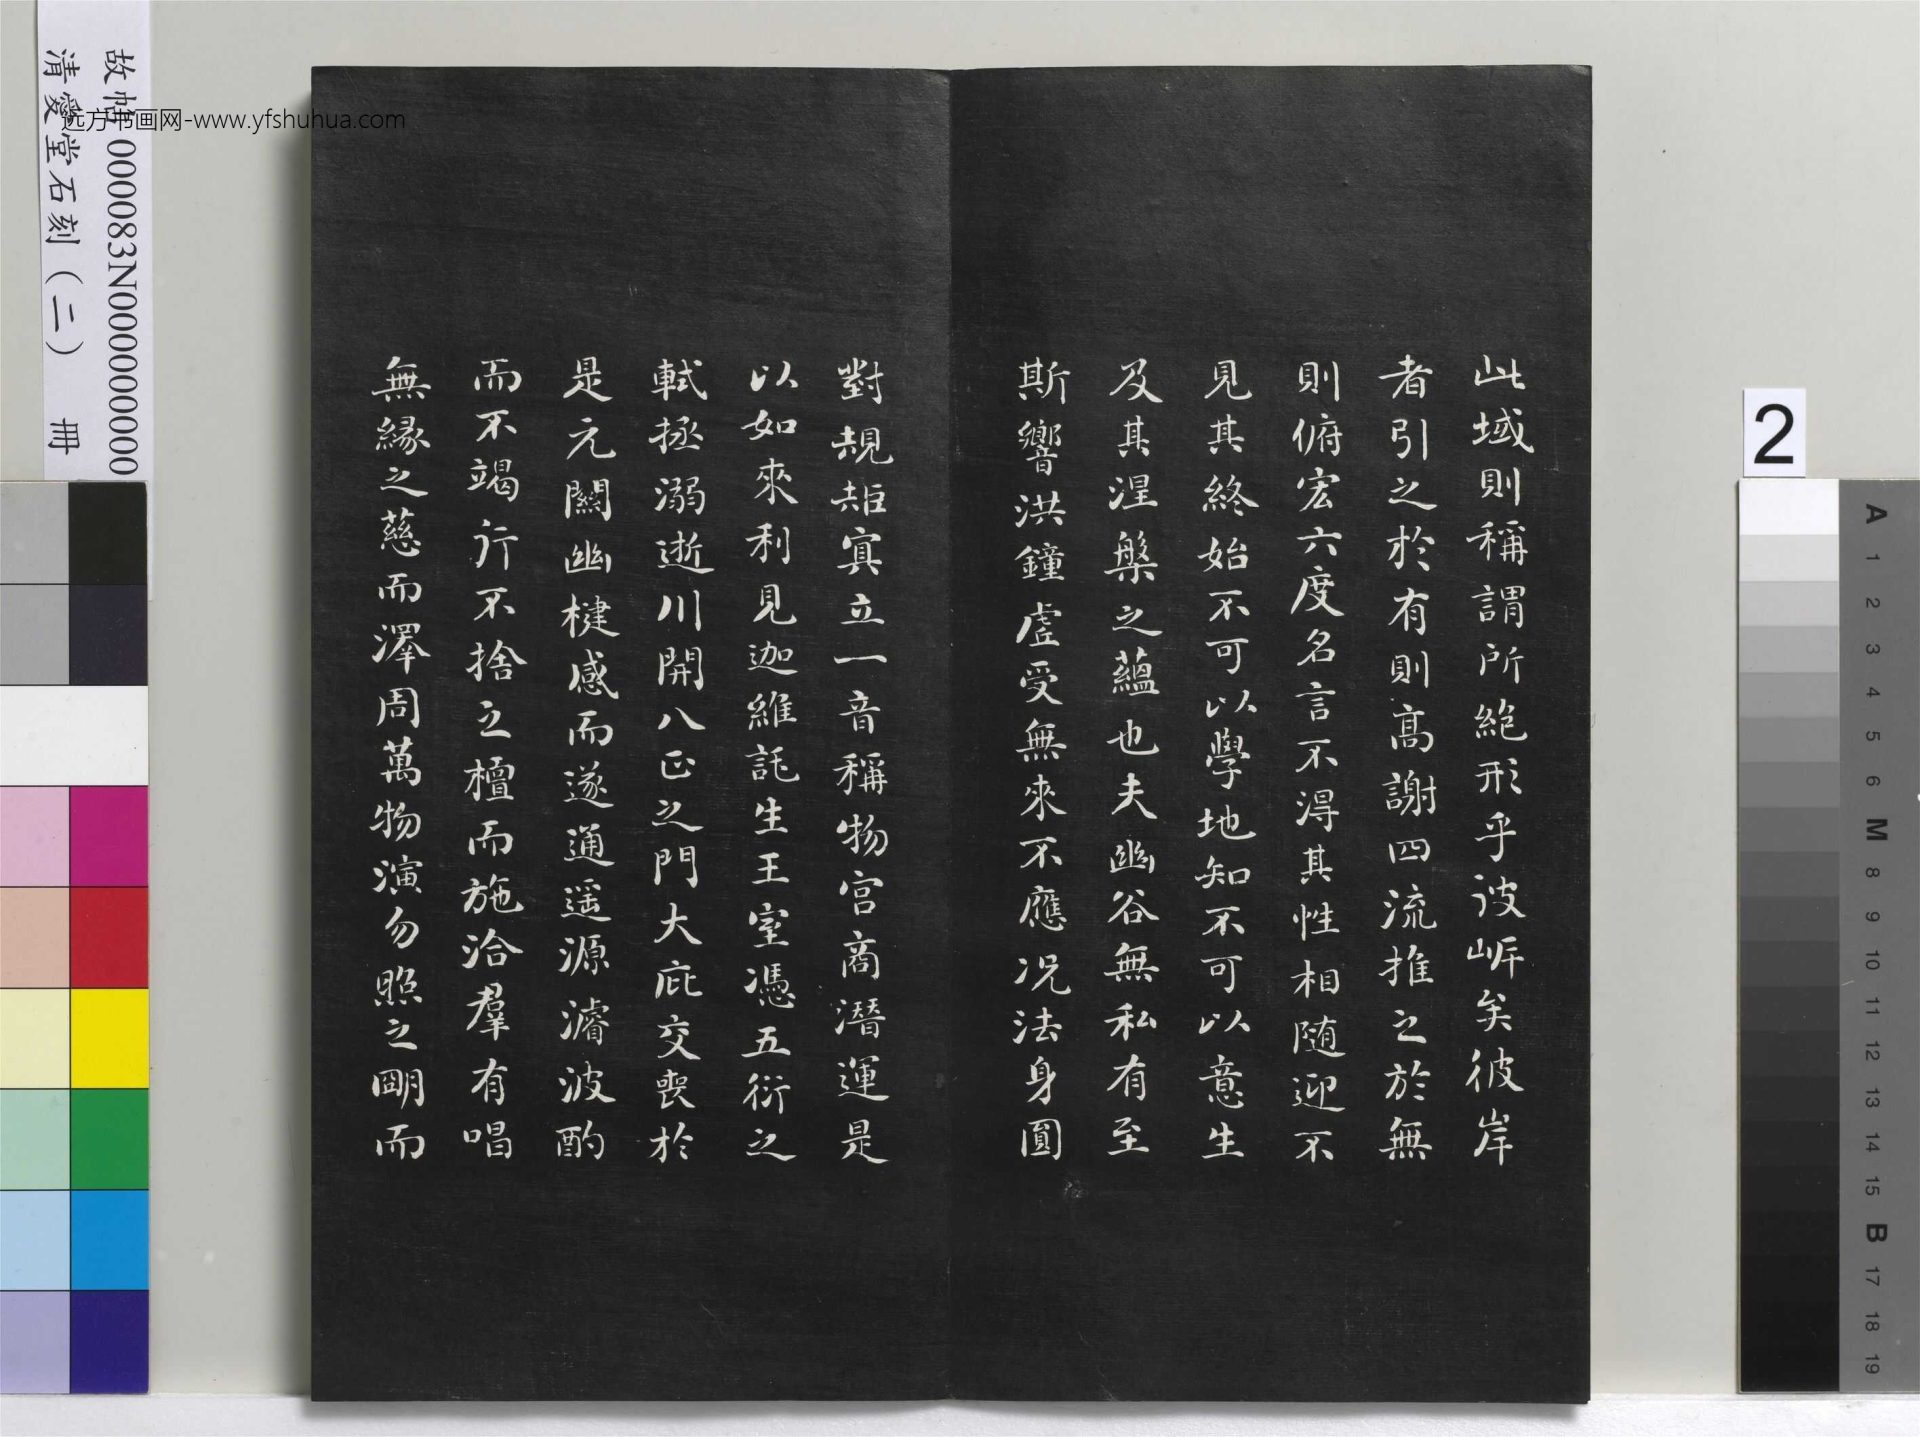 此域則稱謂所絕形乎彼岸矣彼岸
者引之於有則高謝四流推之於無
則俯宏六度名言不得其性相随迎不
見其終始不可以學地知不可以意生
及其涅槃之蘊也夫幽谷無私有至
斯響洪鐘虛受無來不應况法身圓
對規矩寘立一音稱物宫商潛運是
以如來利見迦維託生王室憑五衍之
軾拯溺逝川開八正之門大庇交喪於
是元關幽楗感而遂通遥源濬波酌
而不竭行不捨之檀而施洽羣有唱
無緣之慈而澤周萬物演勿照之明而
故帖 000083N000000000
清愛堂石刻（二） 冊
远方书画网-www.yfshuhua.com
2
A
1
2
3
4
5
6
M
8
9
10
11
12
13
14
15
B
17
18
19